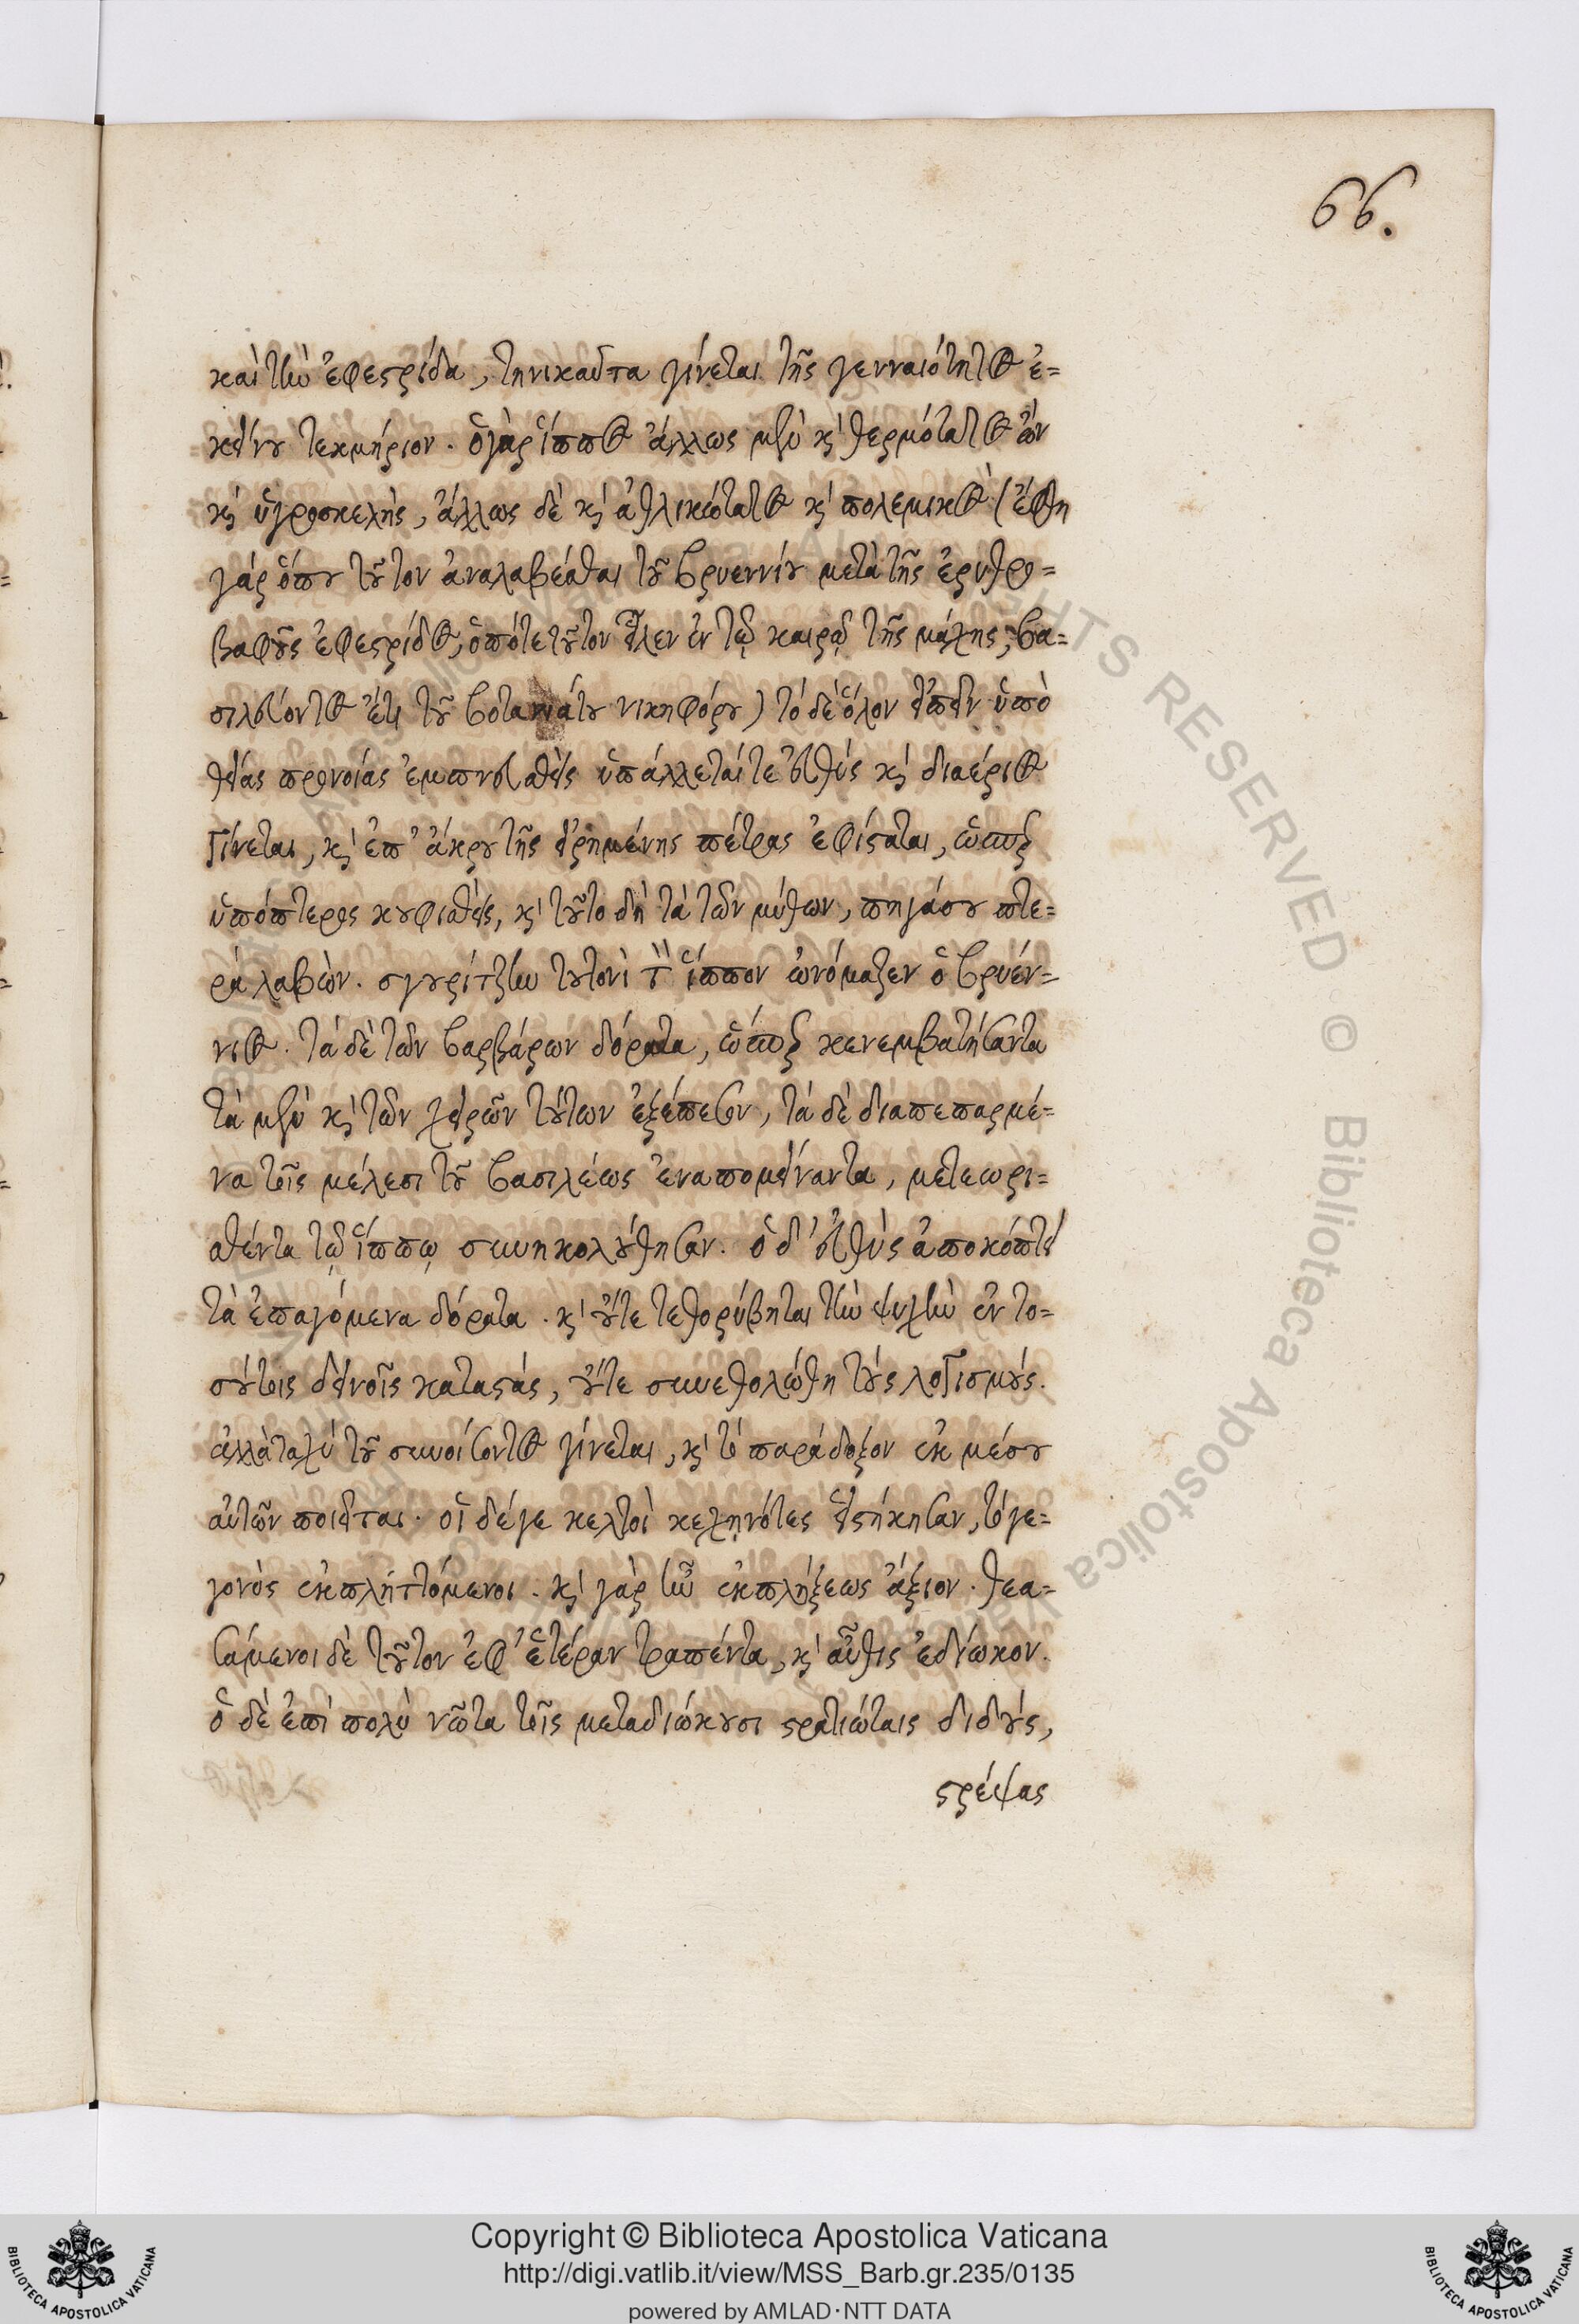 66.
καὶ τὴν ἐφεστρίδα, τηνικαῦτα γίνεται τῆς γενναιότητος ἐ=
κείνου τεκμήριον. ὁ γὰρ ἵππος ἄλλως μὲν κ̀ θερμότατος ὢν
κ̀ ὑγροσκελὴς, ἄλλως δὲ κ̀ ἀθλικώτατος κ̀ πολεμικὸς (ἔφθη
γάρ ὅπου τοῦτον ἀναλαβέσθαι τοῦ βρυεννίου μετὰ τῆς ἐρυθρο=
βαφοῦς ἐφεστρίδος, ὁπότε τοῦτον εἷλεν ἐν τῷ καιρῷ τῆς μάχης, βα=
σιλεύοντος ἔτι τοῦ βοτανιάτου νικηφόρου) τὸ δὲ ὅλον εἰπεῖν ὑπὸ
θείας προνοίας ἐμπνευσθεὶς ὑπάλλεταί τε εὐθὺς κ̀ διαέριος
γίνεται, κ̀ ἐπ' ἄκρου τῆς εἰρημένης πέτρας ἐφίσταται, ὥσπερ
ὑπόπτερος κουφισθεὶς, κ̀ τοῦτο δὴ τὰ τῶν μύθων, πηγάσου πτε=
ρὰ λαβὼν. σγουρίτζην τουτονὶ τὸν ἵππον ὠνόμαζεν ὁ βρυέν=
νιος. τὰ δὲ τῶν βαρβάρων δόρατα, ὥσπερ κενεμβατήσαντα
τὰ μὲν κ̀ τῶν χειρῶν τούτων ἐξέπεσον, τὰ δὲ διαπεπαρμέ=
να τοῖς μέλεσι τοῦ βασιλέως ἐναπομείναντα, μετεωρι=
σθέντα τῷ ἵππῳ συνηκολούθησαν. ὁ δ' εὐθὺς ἀποκόπτει
τὰ ἐπαγόμενα δόρατα. κ̀ οὔτε τεθορύβηται τὴν ψυχὴν ἐν το=
σούτοις δεινοῖς καταστάς, οὔτε συνεθολώθη τοὺς λογισμούς.
ἀλλὰ ταχὺ τοῦ συνοίσοντος γίνεται, κ̀ τὸ παράδοξον ἐκ μέσου
αὐτῶν ποιεῖται. οἱ δέ γε κελτοὶ κεχηνότες εἱστήκησαν, τὸ γε=
γονὸς ἐκπληττόμενοι. κ̀ γὰρ ἦν ἐκπλήξεως ἄξιον. θεα=
σάμενοι δὲ τοῦτον ἐφ' ἑτέραν τραπέντα, κ̀ αὖθις ἐδίωκον.
ὁ δὲ ἐπὶ πολὺ νῶτα τοῖς μεταδιώκουσι στρατιώταις διδοὺς,
στρέψας
Copyright © Biblioteca Apostolica Vaticana
http://digi.vatlib.it/view/MSS_Barb.gr.235/0135
powered by AMLAD·NTT DATA